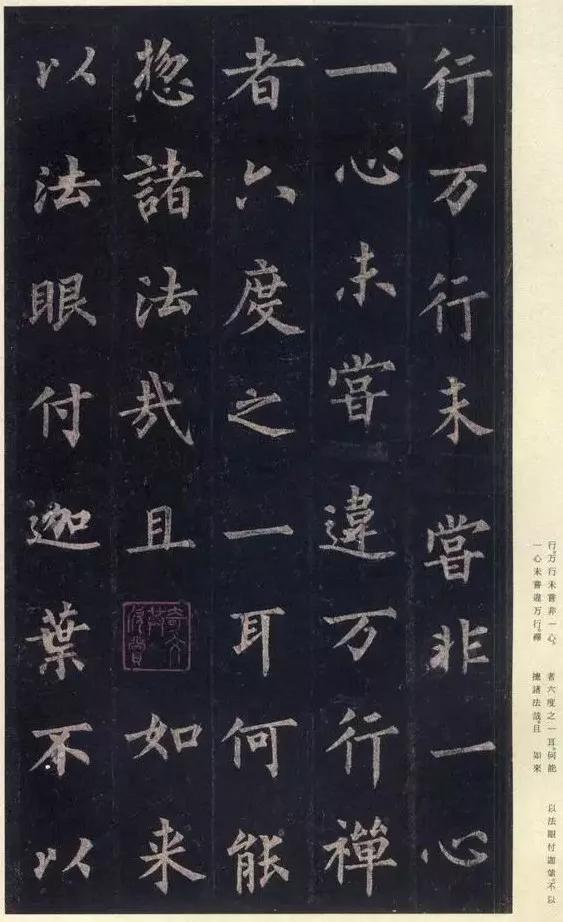 行万行未甞非一心
一心未甞違万行禪
者六度之一耳何能
揔諸法㢤且如来
以法眼付迦葉不以
行。万行未嘗非一心。
一心未嘗違万行。禪
者六度之一耳。何能
揔諸法哉。且 如來
以法眼付迦葉。不以